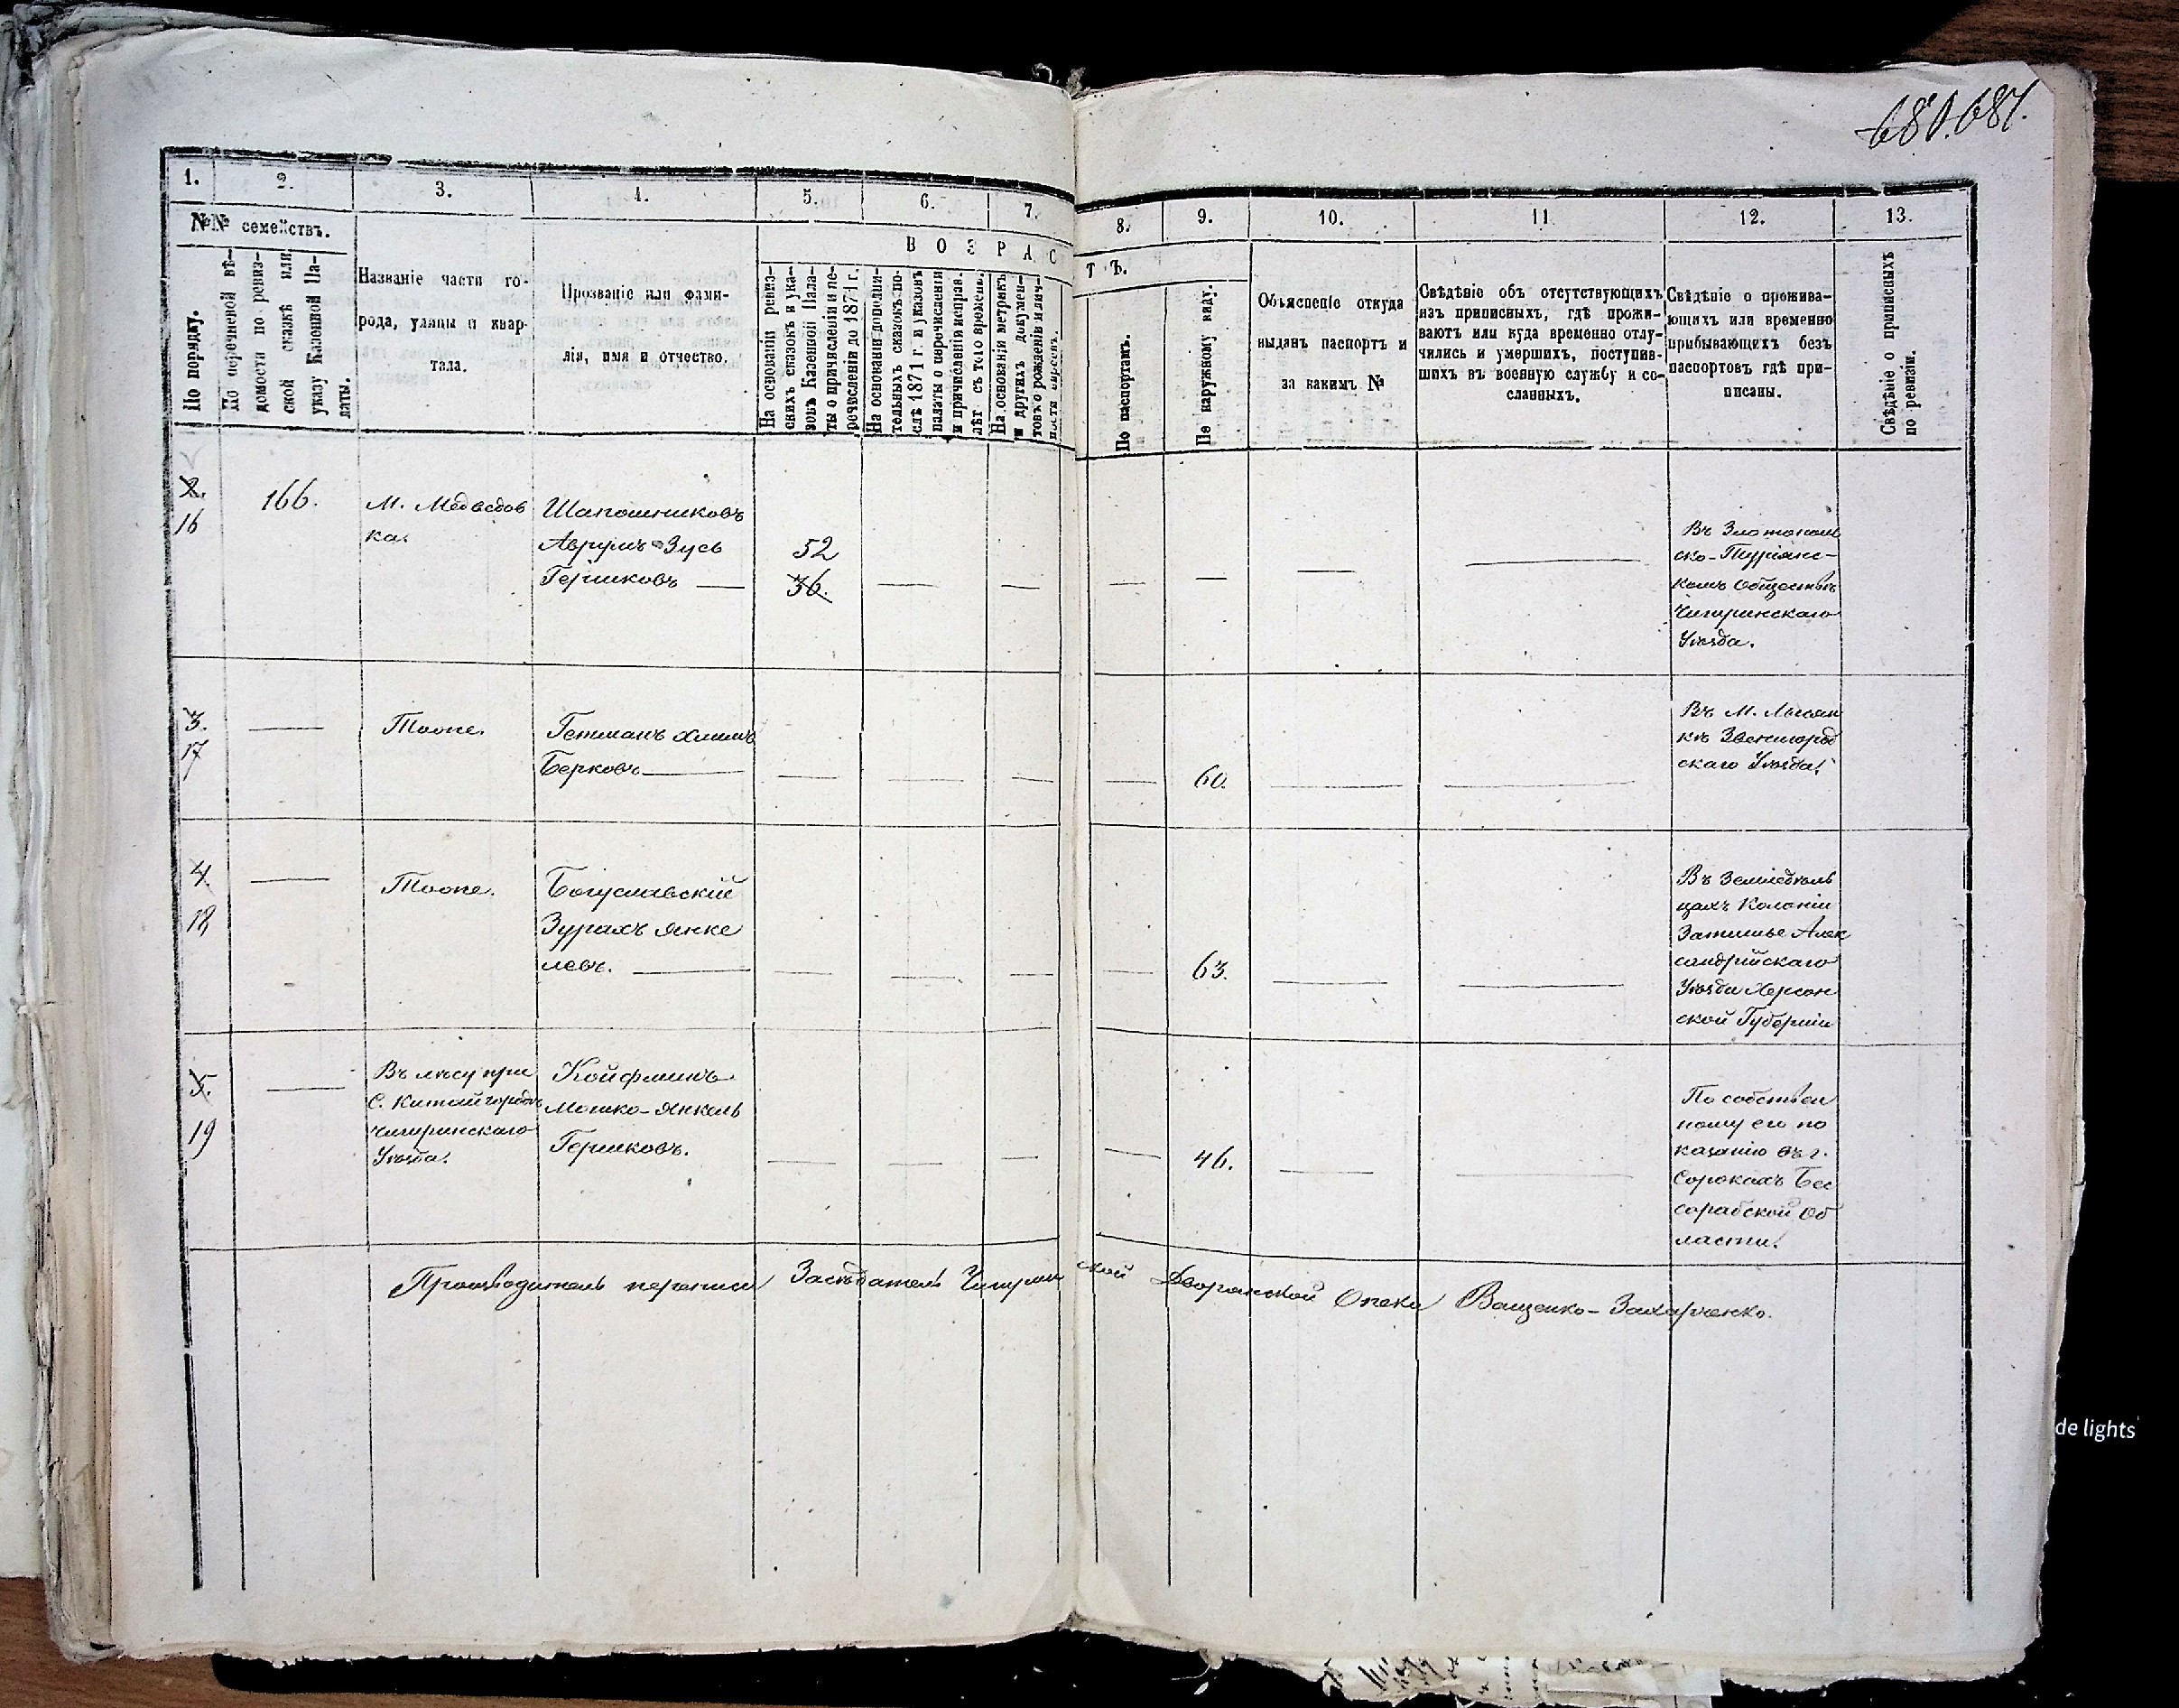 680. 681.
1. 2. 3. 4. 5. 6. 7. 8. 9. 10. 11. 12. 13.
№№ семействъ.
По порядку.
По перечневой вѣ-
домости по ревиз-
ской сказкѣ или
указу Казенной Па-
латы.
Названіе части го-
рода, улицы и квар-
тала.
Прозваніе или фами-
лія, имя и отчество.
ВОЗРАСТЪ.
На основаніи ревиз-
скихъ сказокъ и ука-
зовъ Казенной Пала-
ты о причисленіи и пе-
речисленіи до 1871 г.
На основаніи дополни-
тельныхъ сказокъ по-
слѣ 1871 г. и указовъ
палаты о перечисленіи
и причисленіи исправ.
лѣт съ того времени.
На основаніи метрикъ
и другихъ докумен-
товъ о рожденіи и лич-
ности евреевъ.
По паспортамъ.
По наружному виду.
Объясненіе откуда
выданъ паспортъ и
за какимъ №
Свѣдѣніе объ отсутствующихъ
изъ приписныхъ, гдѣ прожи-
ваютъ или куда временно отлу-
чились и умершихъ, поступив-
шихъ въ военную службу и со-
сланныхъ.
Свѣдѣніе о прожива-
ющихъ или временно
прибывающихъ безъ
паспортовъ гдѣ при-
писаны.
Свѣдѣніе о приписныхъ
по ревизіи.
2.
16
166.
М. Медведов
ка.
Шапошниковъ
Аврумъ-Зусь
Гершковъ —
52
36.
— — — — — —
Въ Златополь
ско-Туріянс-
комъ Обществѣ
Чигиринскаго
Уѣзда.
3.
17
—
Тооже.
Гетманъ Хаимъ
Берковъ —
— — — —
60.
— —
Въ М. Лысян
кѣ Звенигород
скаго Уѣзда.
4.
18
—
Тооже.
Богуславскій
Зурахъ Янке
левъ. —
— — — —
63.
— —
Въ Земледѣль
цахъ Колоніи
Затишье Алек
сандрійскаго
Уѣзда Херсон
ской Губерніи
5.
19
—
Въ лѣсу при
С. Китайгородѣ
Чигиринскаго
Уѣзда.
Койфманъ
Мошко-Янкель
Гершковъ.
— — — —
46.
— —
По собствен
ному его по
казанію въ г.
Сорокахъ Бес
сарабской Об
ласти.
Производитель переписи Засѣдатель Чигирин ской Дворянской Опеки Ващенко-Захарченко.
de lights